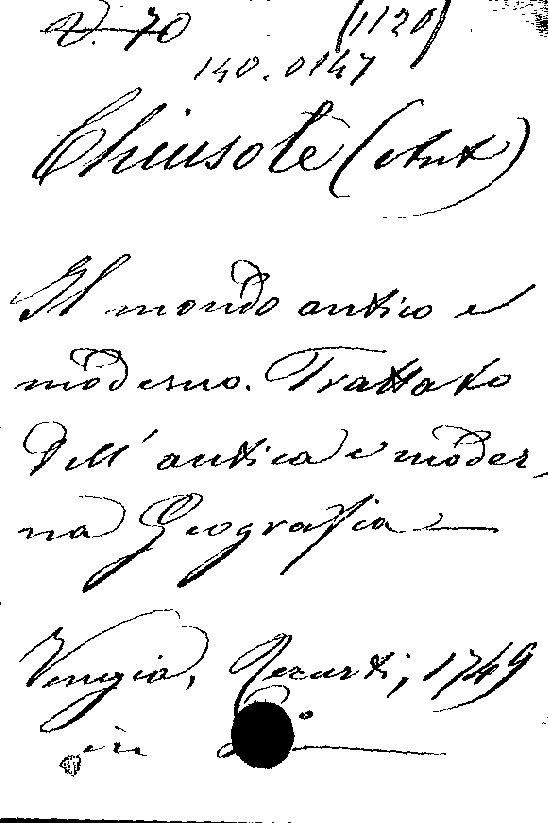 V. 70 (1120)
140.0147
Chiusole (Ant)
Il mondo antico e
moderno. Trattato
dell' antica e moder-
na Geografia
Venezia, Recurti, 1749
in